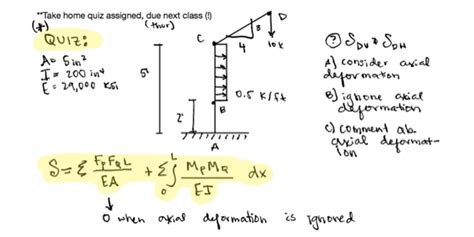 **Take home quiz assigned, due next class (!)
(*)
(thur)
QUIZ:
A = 5 in²
I = 200 in⁴
E = 29,000 KSI
5'
2'
C
D
3
4
10K
0.5 K/ft
B
A
? δDV & δDH
A) consider axial
deformation
B) ignore axial
deformation
C) comment ab.
axial deformat-
ion
δ = Σ FPFQL/EA + Σ∫₀ᴸ MPMQ/EI dx
↓
0 when axial deformation is ignored